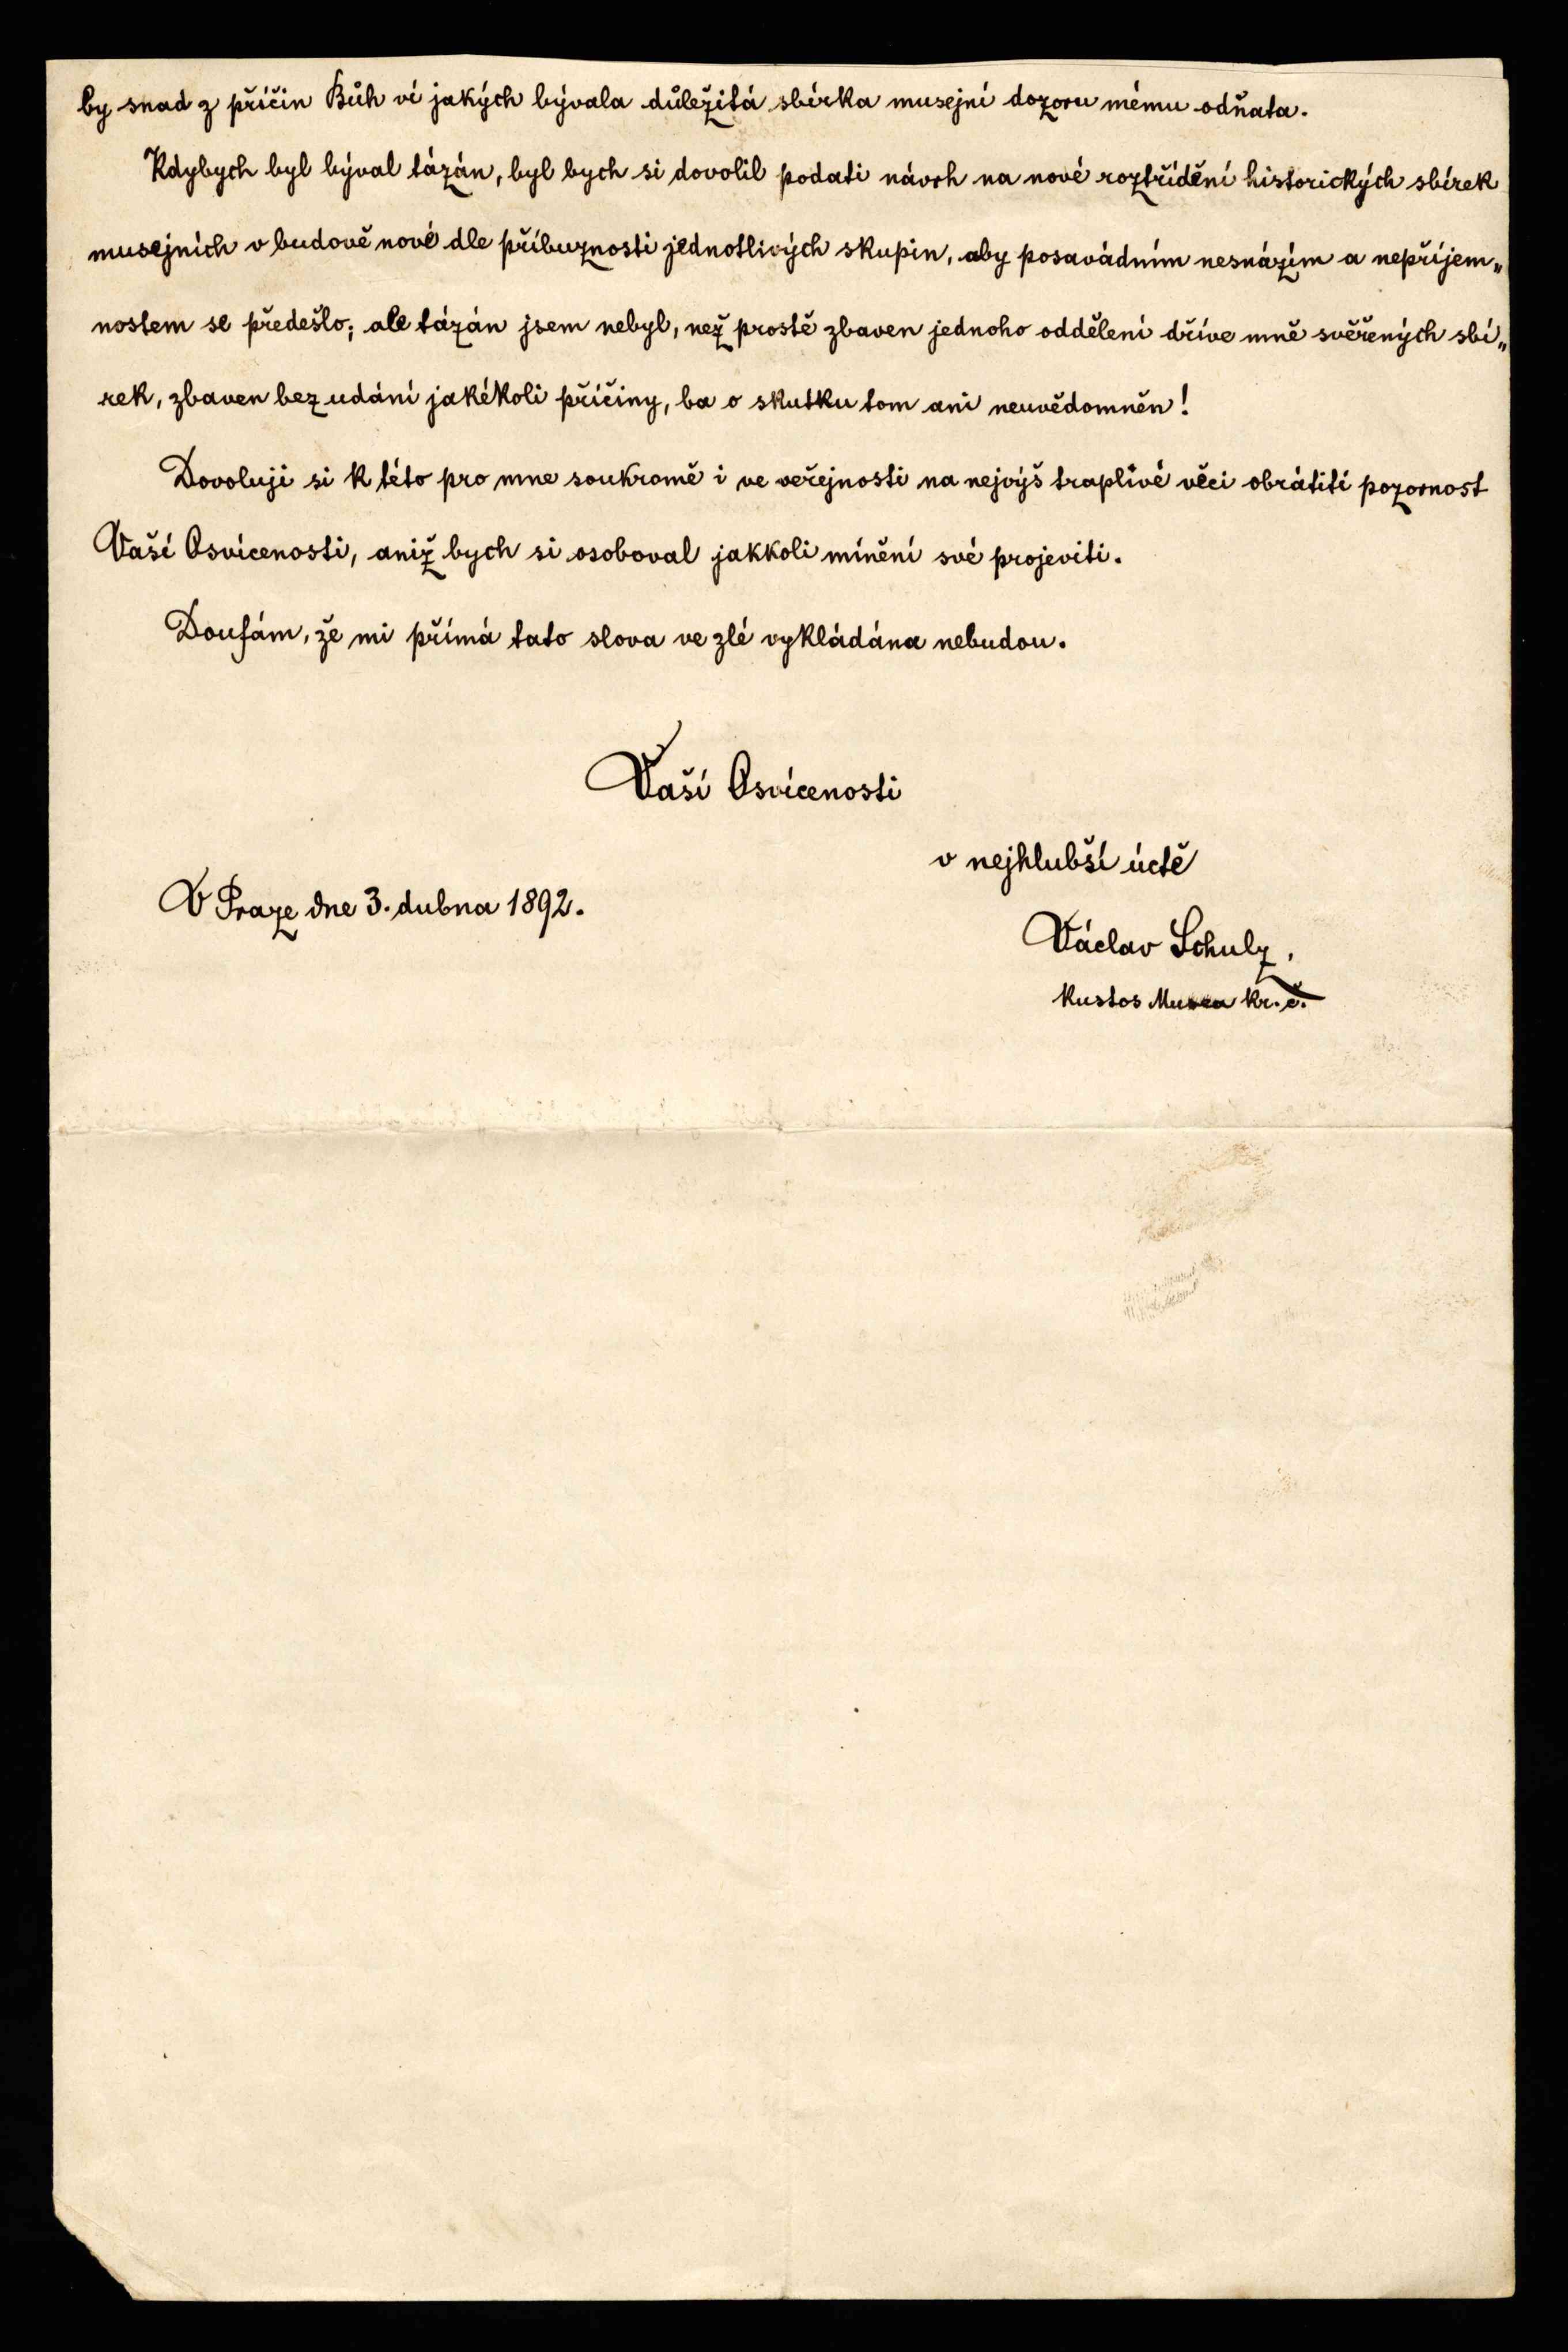 by snad z příčin Bůh ví jakých bývala důležitá sbírka musejní dozoru mému odňata.
Kdybych byl býval tázán, byl bych si dovolil podati návrh na nové roztřídění historických sbírek
musejních v budově nové dle příbuznosti jednotlivých skupin, aby posavádním nesnázím a nepříjem„
nostem se předešlo; ale tázán jsem nebyl, než prostě zbaven jednoho oddělení dříve mně svěřených sbí„
rek, zbaven bez udání jakékoli příčiny, ba o skutku tom ani neuvědomněn!
Dovoluji si k této pro mne soukromě i ve veřejnosti na nejvýš traplivé věci obrátiti pozornost
Vaší Osvícenosti, aniž bych si osoboval jakkoli mínění své projeviti.
Doufám, že mi přímá tato slova ve zlé vykládána nebudou.
Vaší Osvícenosti
v nejhlubší úctě
V Praze dne 3. dubna 1892.
Václav Schulz,
kustos Musea kr. č.